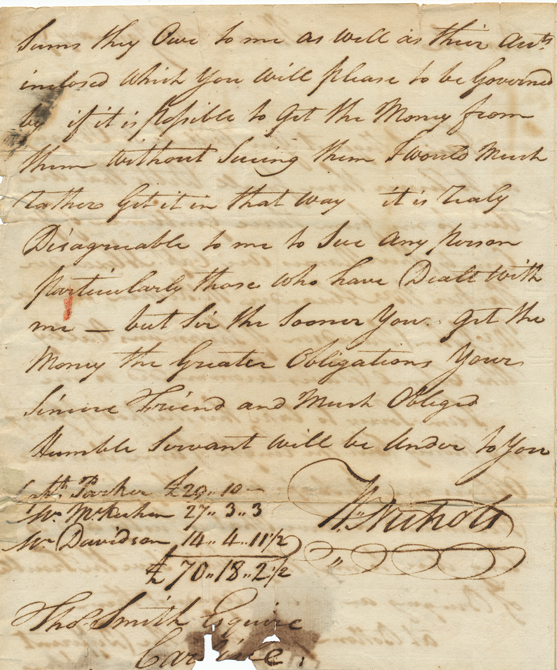 Sums they Owe to me as well as their Accts
inclosed which You will please to be Governed
by if it is Possible to Get the Money from
them Without Sueing them I would Much
rather Get it in that way it is realy
Disagreeable to me to Sue any Person
Particularly those who have Dealt with
me — but Sir the Sooner You Get the
Money the Greater Obligations Your
Sincere Friend and Much Obliged
Humble Servant will be Under to You
Parker £29,, 10 —
Mr. 27,, 3,, 3
Mr Davidson 14,, 4,, 11 1/2
£ 70,, 18,, 2 1/2
Wm Nichols
Thos. Smith Esquire
Carlisle.